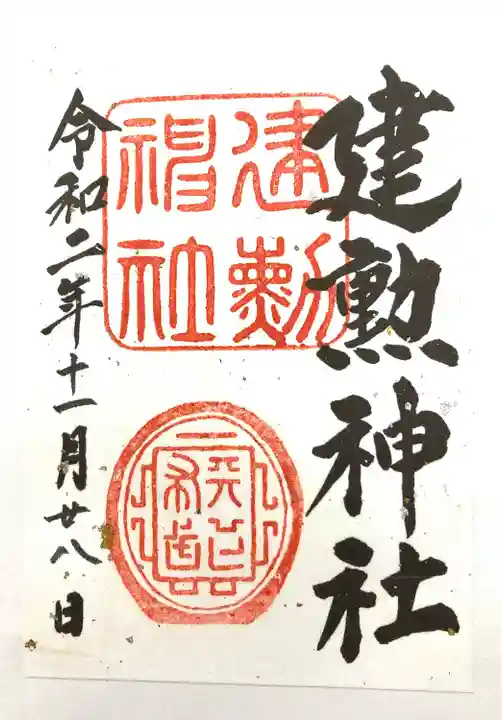 建勲神社
建勲
神社
天下布武
令和二年十一月廿八日